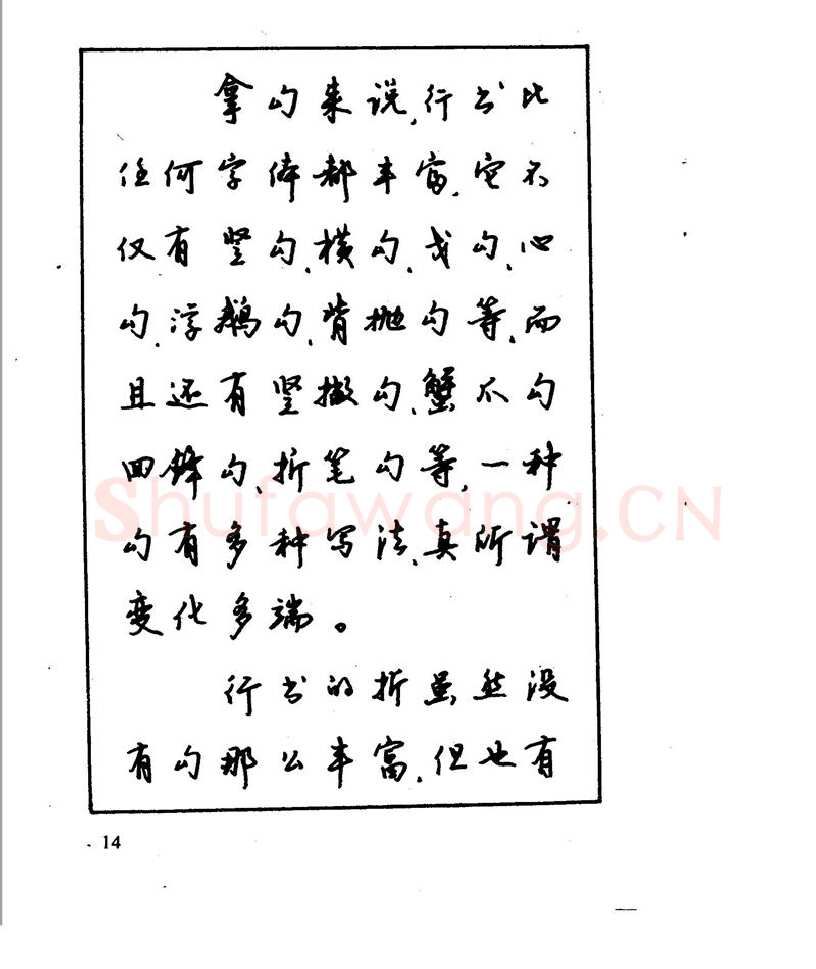 拿勾来说,行书比
任何字体都丰富,它不
仅有竖勾、横勾、戈勾、心
勾、浮鹅勾、背抛勾等,而
且还有竖撇勾、蟹爪勾
回锋勾、折笔勾等,一种
勾有多种写法,真所谓
变化多端。
行书的折虽然没
有勾那么丰富,但也有
14
Shufawang.CN